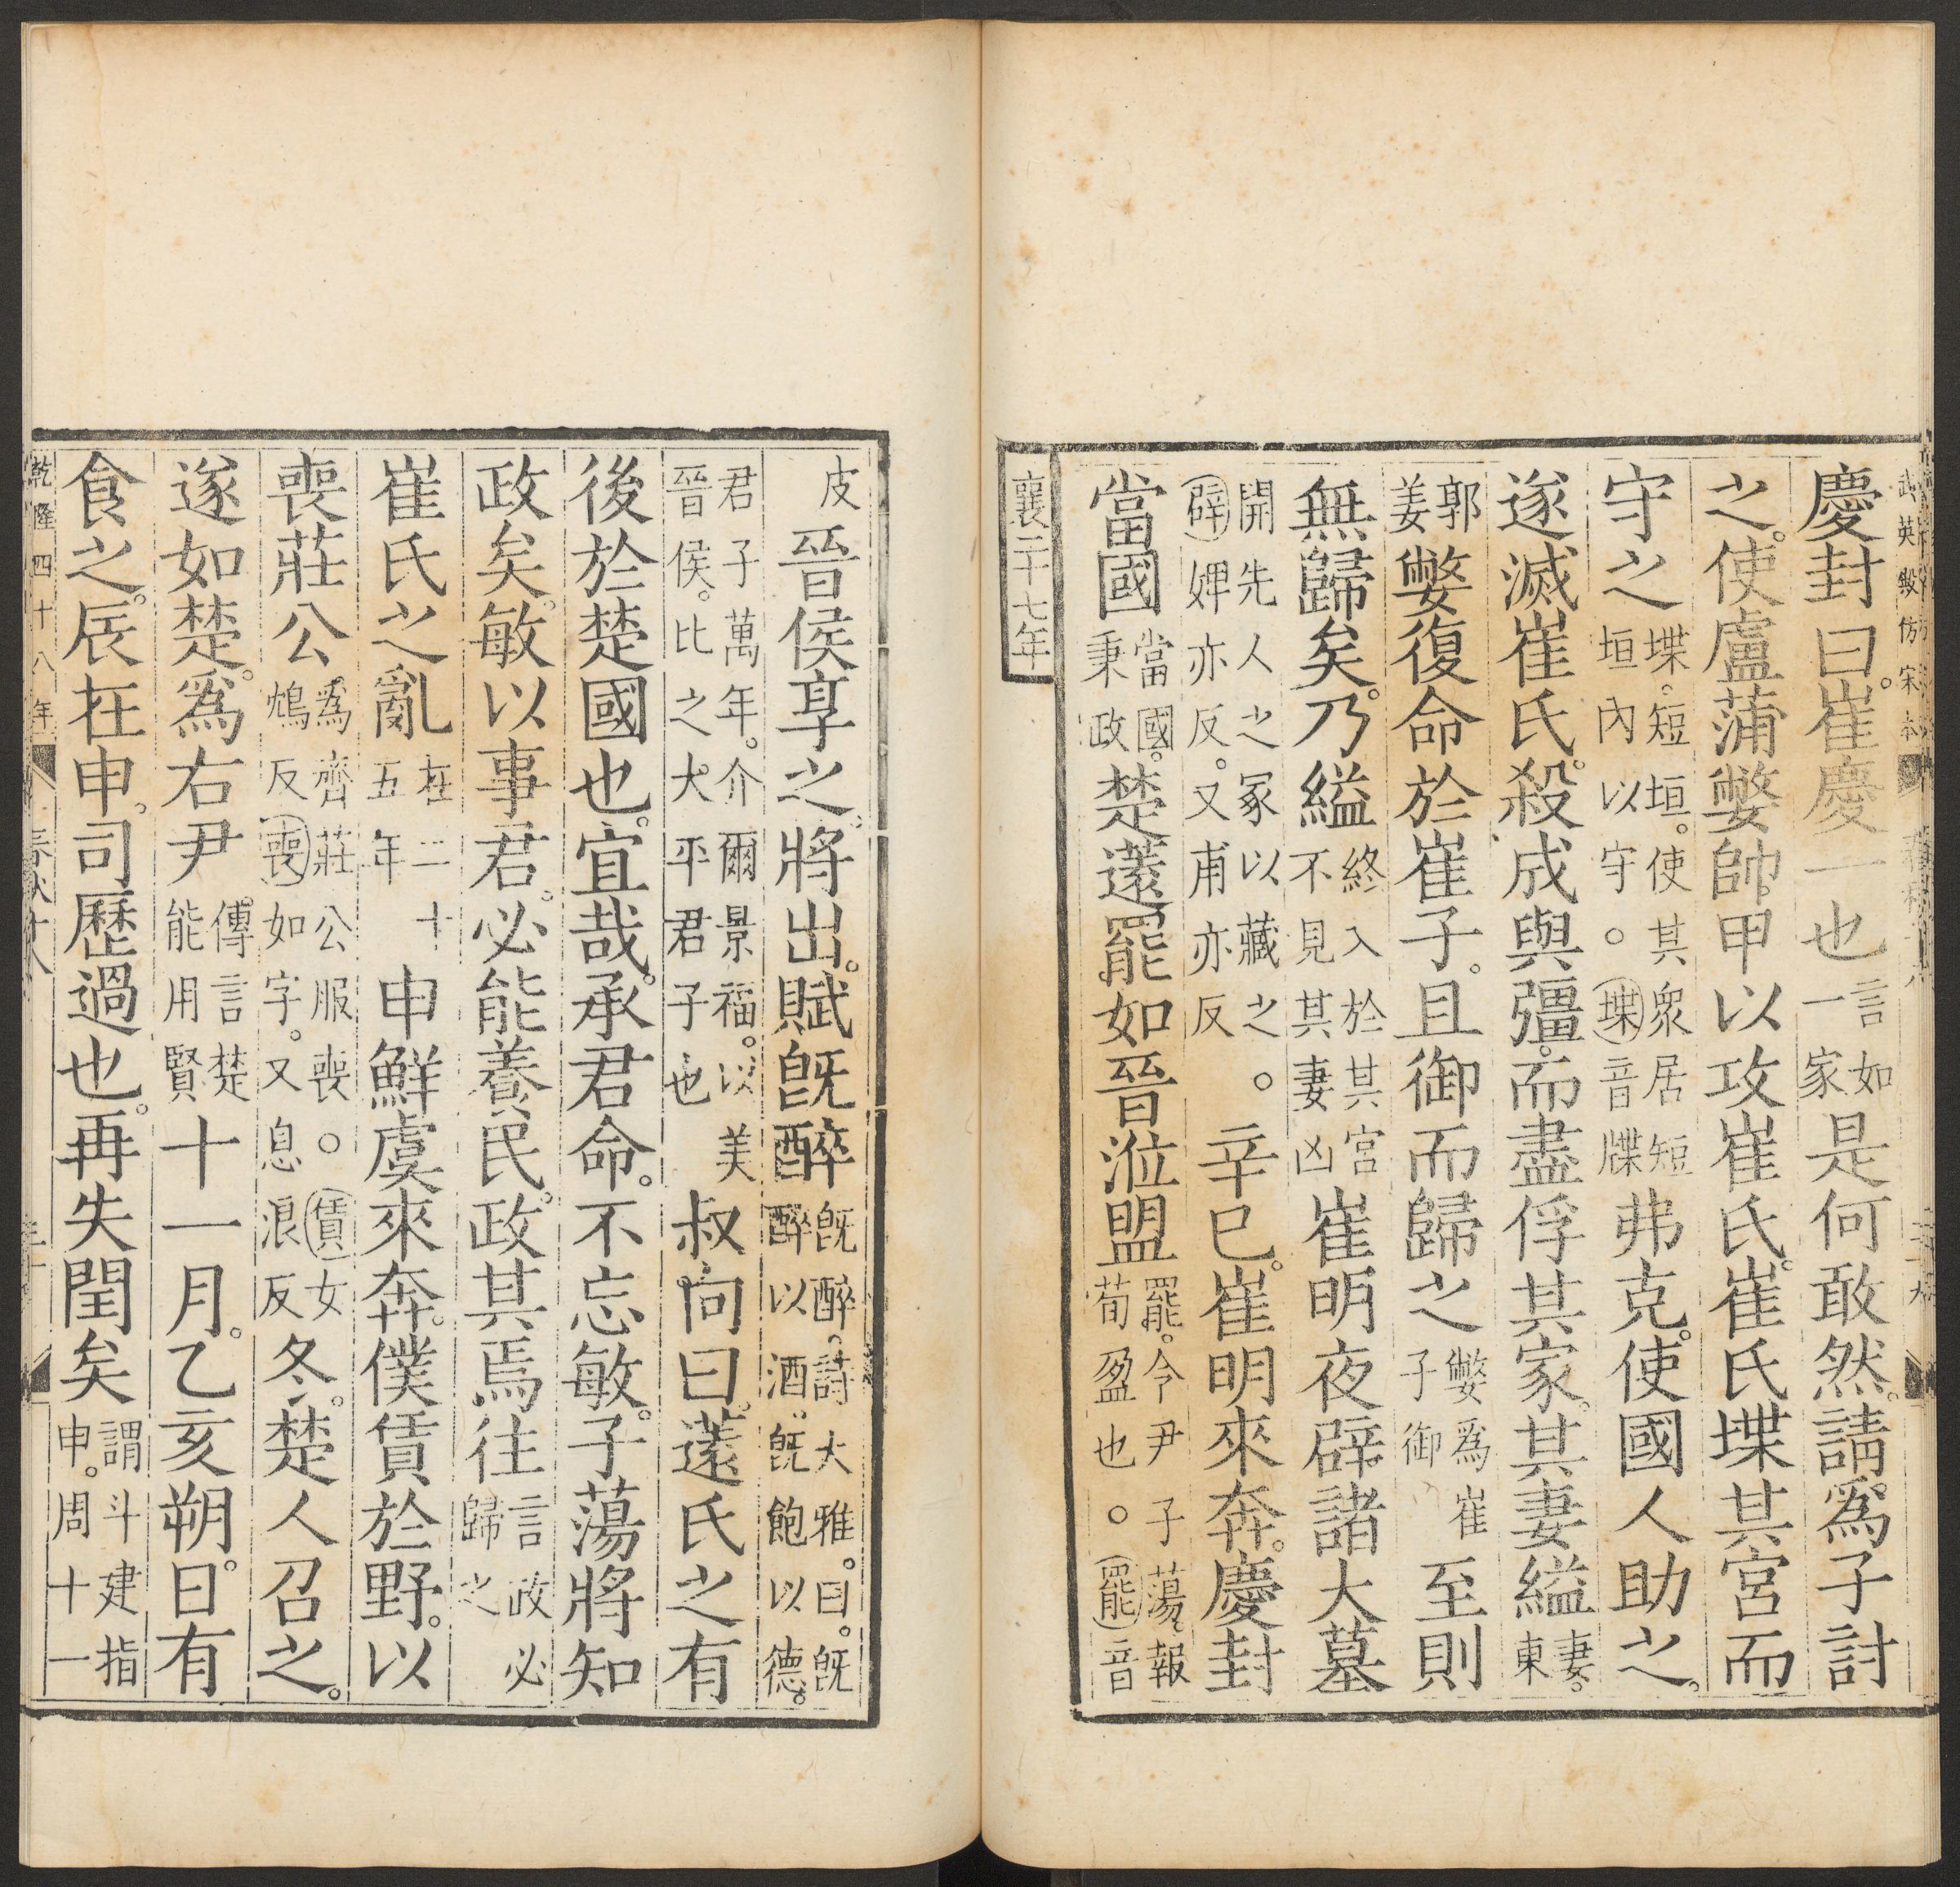 武英殿仿宋本 春秋十八 二十九
慶封曰。崔慶一也言如一家是何敢然。請爲子討
之。使盧蒲嫳帥甲以攻崔氏。崔氏堞其宮而
守之堞。短垣。使其衆居短垣內以守。○堞音牒弗克。使國人助之。
遂滅崔氏。殺成與彊。而盡俘其家。其妻縊妻。東
郭姜嫳復命於崔子。且御而歸之嫳爲崔子御至則
無歸矣。乃縊終入於其宮不見其妻凶崔明夜辟諸大墓
開先人之冢以藏之○辟婢亦反。又甫亦反辛巳。崔明來奔。慶封
當國當國。秉政楚薳罷如晉涖盟罷。令尹子蕩。報荀盈也。○罷音
襄二十七年
皮晉侯享之。將出。賦旣醉旣醉。詩大雅。曰。旣醉以酒。旣飽以德。
君子萬年。介爾景福。以美晉侯。比之大平君子也叔向曰。薳氏之有
後於楚國也。宜哉。承君命。不忘敏。子蕩將知
政矣。敏以事君。必能養民。政其焉往言政必歸之
崔氏之亂在二十五年申鮮虞來奔。僕賃於野。以
喪莊公。爲齊莊公服喪。○賃女鴆反喪如字。又息浪反冬。楚人召之。
遂如楚。爲右尹。傳言楚能用賢十一月。乙亥朔。日有
食之。辰在申。司歷過也。再失閏矣謂斗建指申。周十一
乾隆四十八年 春秋十八 三十